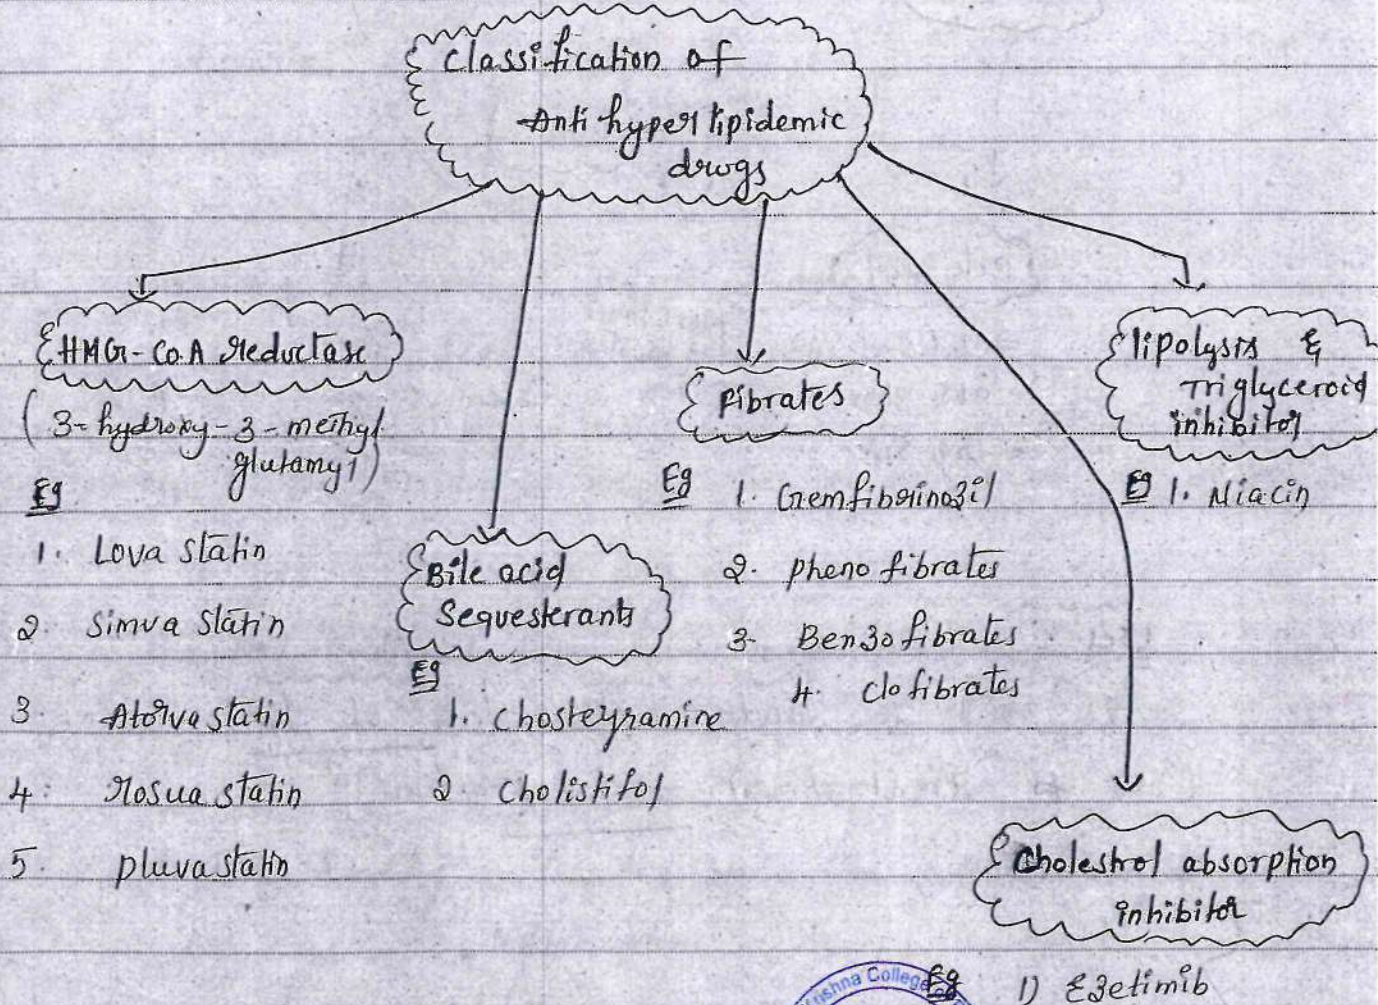 Classification of
Anti hyper lipidemic
drugs
HMG-Co.A reductase
(3-hydroxy-3-methyl
glutamyl)
Eg
1. Lova statin
2. Simva statin
3. Atorva statin
4. rosua statin
5. pluva statin
Bile acid
Sequesterants
Eg
1. Chosteyramine
2. Cholistifol
Fibrates
Eg 1. Gemfibrinozil
2. pheno fibrates
3. Benzo fibrates
4. clo fibrates
lipolysis &
Triglyceroid
inhibitor
Eg 1. Niacin
Cholestrol absorption
inhibitor
Eg 1) Ezetimib
rishna College